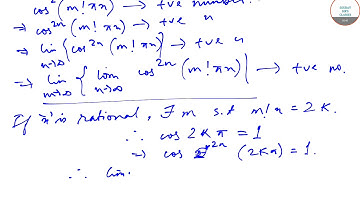 cos² (m! πx) → +ve number...
⇒ cos²ⁿ (m! πx) → +ve n
⇒ lim n→∞ {cos²ⁿ (m! πx)} → +ve n
⇒ lim m→∞ {lim n→∞ cos²ⁿ (m! πx)} → +ve no.
If 'x' is rational, ∃ m s.t m! x = 2K.
∴ cos 2Kπ = 1
⇒ cos²ⁿ (2Kπ) = 1.
∴ lim